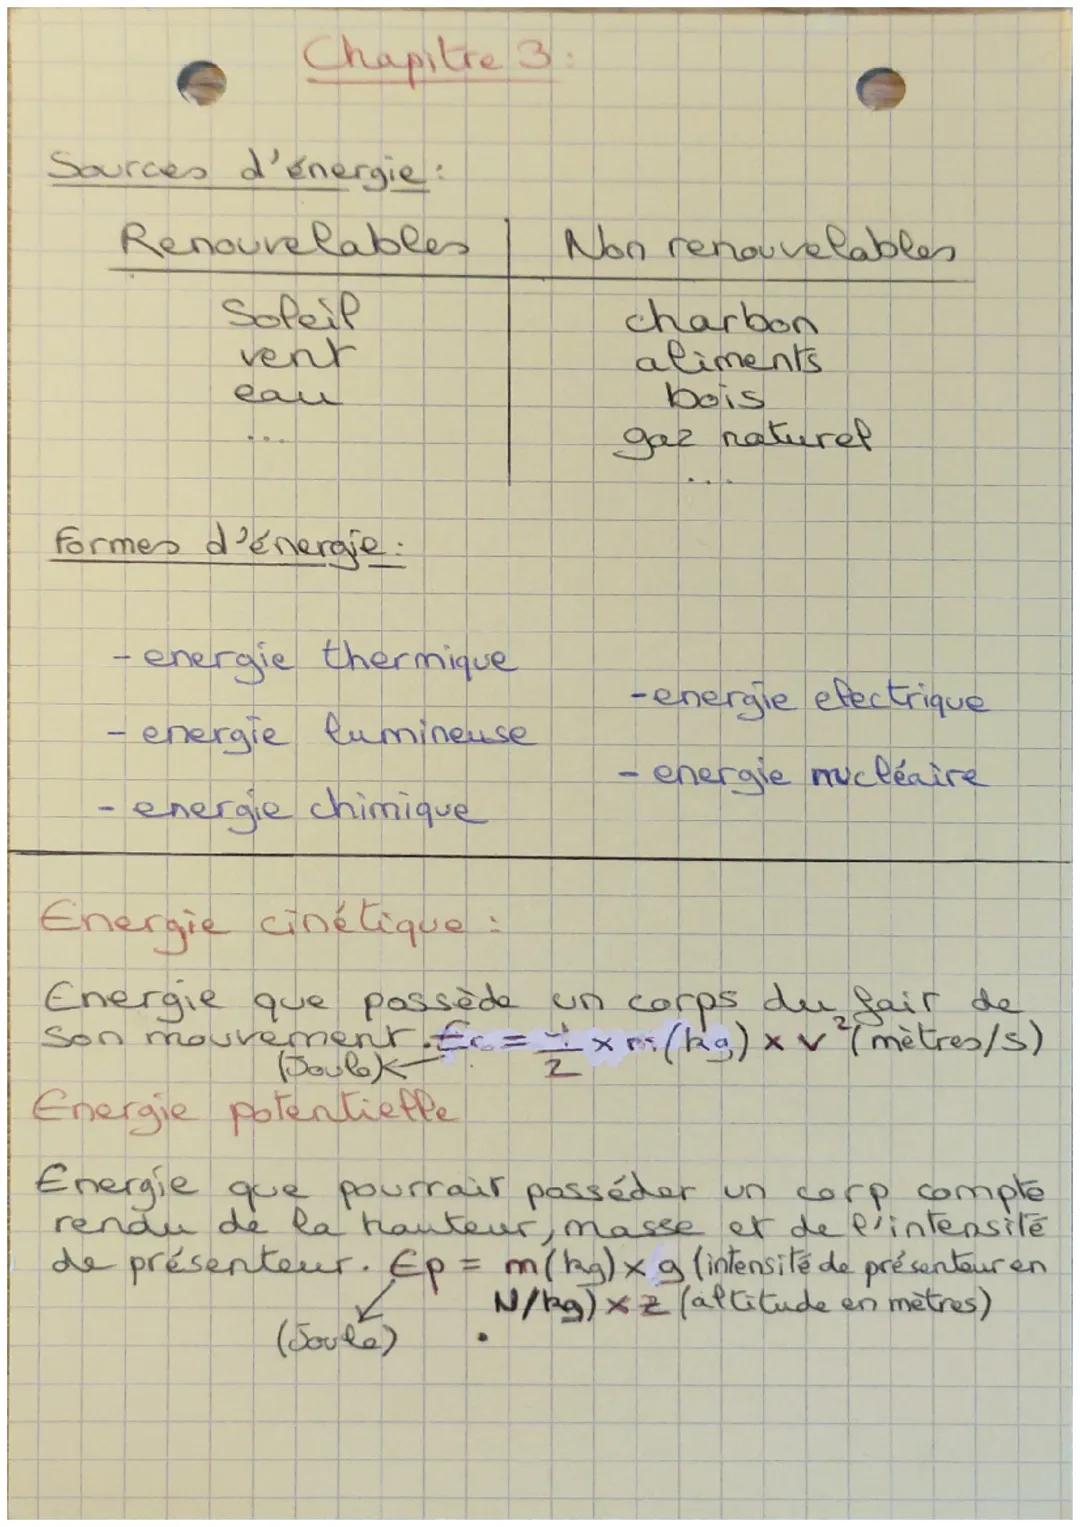 Chapitre 3 :
Sources d'énergie :
Renouvelables Non renouvelables
Soleil charbon
vent aliments
eau bois
... gaz naturel
...
Formes d'énergie :
- energie thermique
- energie electrique
- energie lumineuse
- energie nucléaire
- energie chimique
Energie cinétique :
Energie que possède un corps du fair de
son mouvement. Ec = 1/2 x m (kg) x v² (mètres/s)
(Joule)
Energie potentielle
Energie que pourrait posséder un corp compte
rendu de la hauteur, masse et de l'intensité
de présenteur. Ep = m(kg) x g (intensité de présenteur en
N/kg) x z (altitude en mètres)
(Joule)